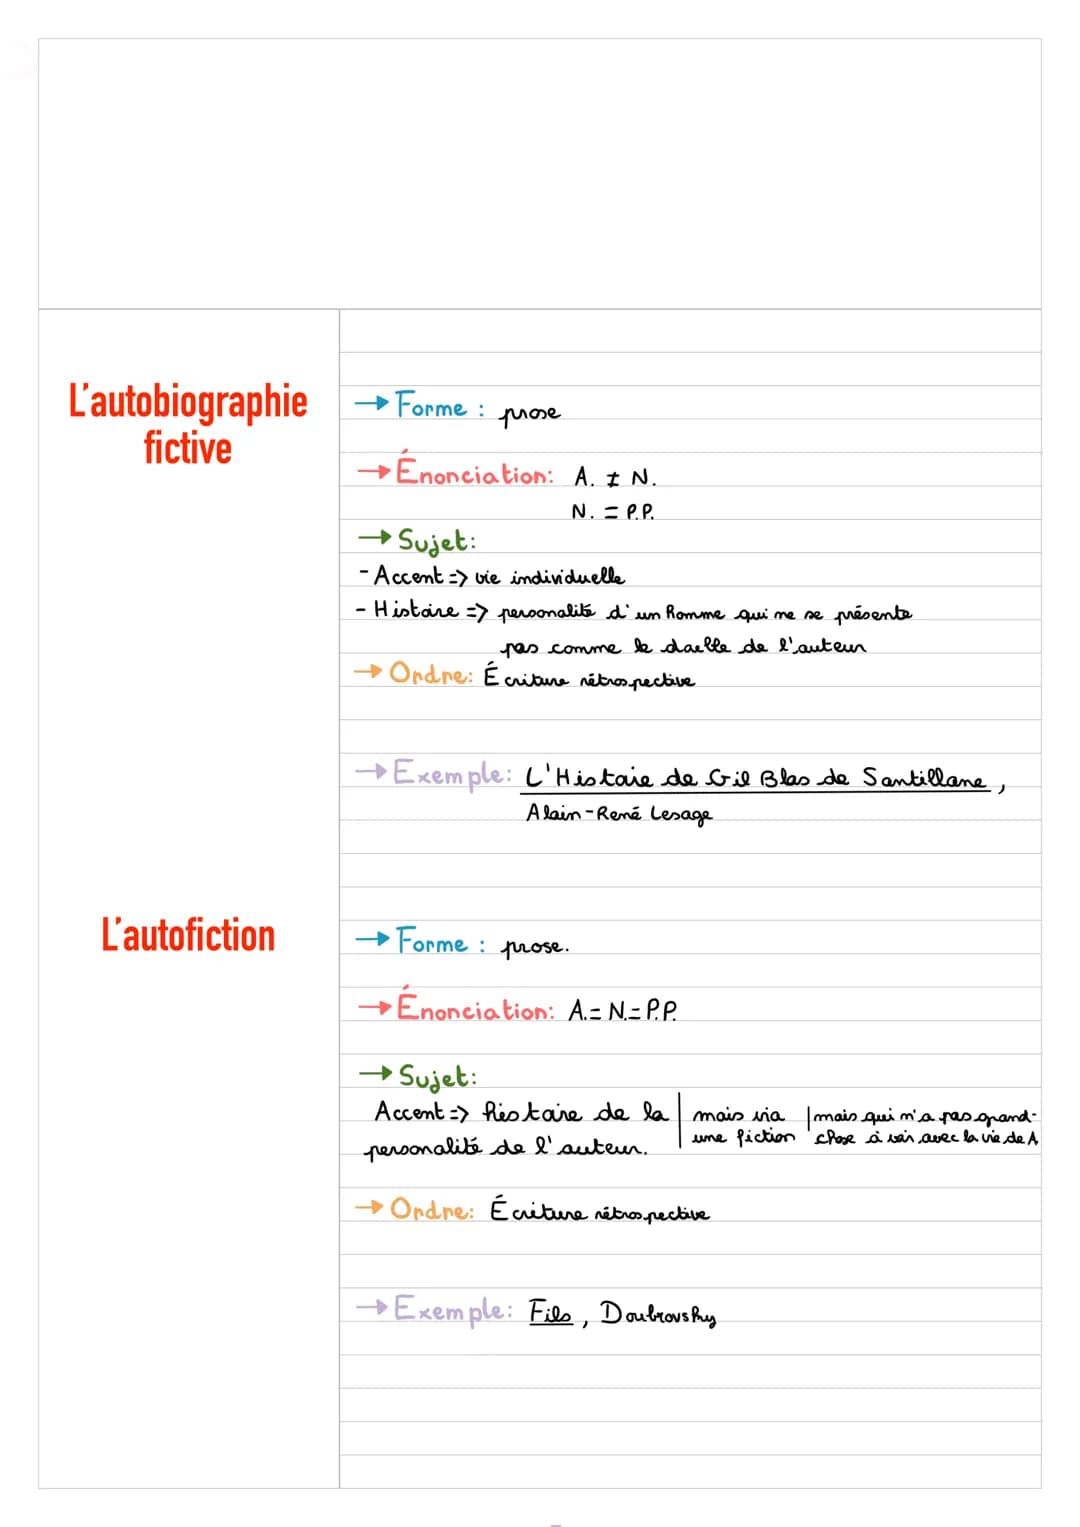 L'autobiographie
fictive
→ Forme : prose
→ Énonciation: A. ≠ N.
N. = P.P.
→ Sujet:
- Accent => vie individuelle
- Histoire => personalité d'un homme qui ne se présente
pas comme le double de l'auteur
→ Ordre: Écriture rétrospective
→ Exemple: L'Histoire de Gil Blas de Santillane,
Alain-René Lesage
L'autofiction
→ Forme : prose.
→ Énonciation: A.= N.= P.P.
→ Sujet:
Accent => histoire de la | mais via | mais qui n'a pas grand-
personalité de l'auteur. | une fiction chose à voir avec la vie de A
→ Ordre: Écriture rétrospective
→ Exemple: Fils, Doubrovsky